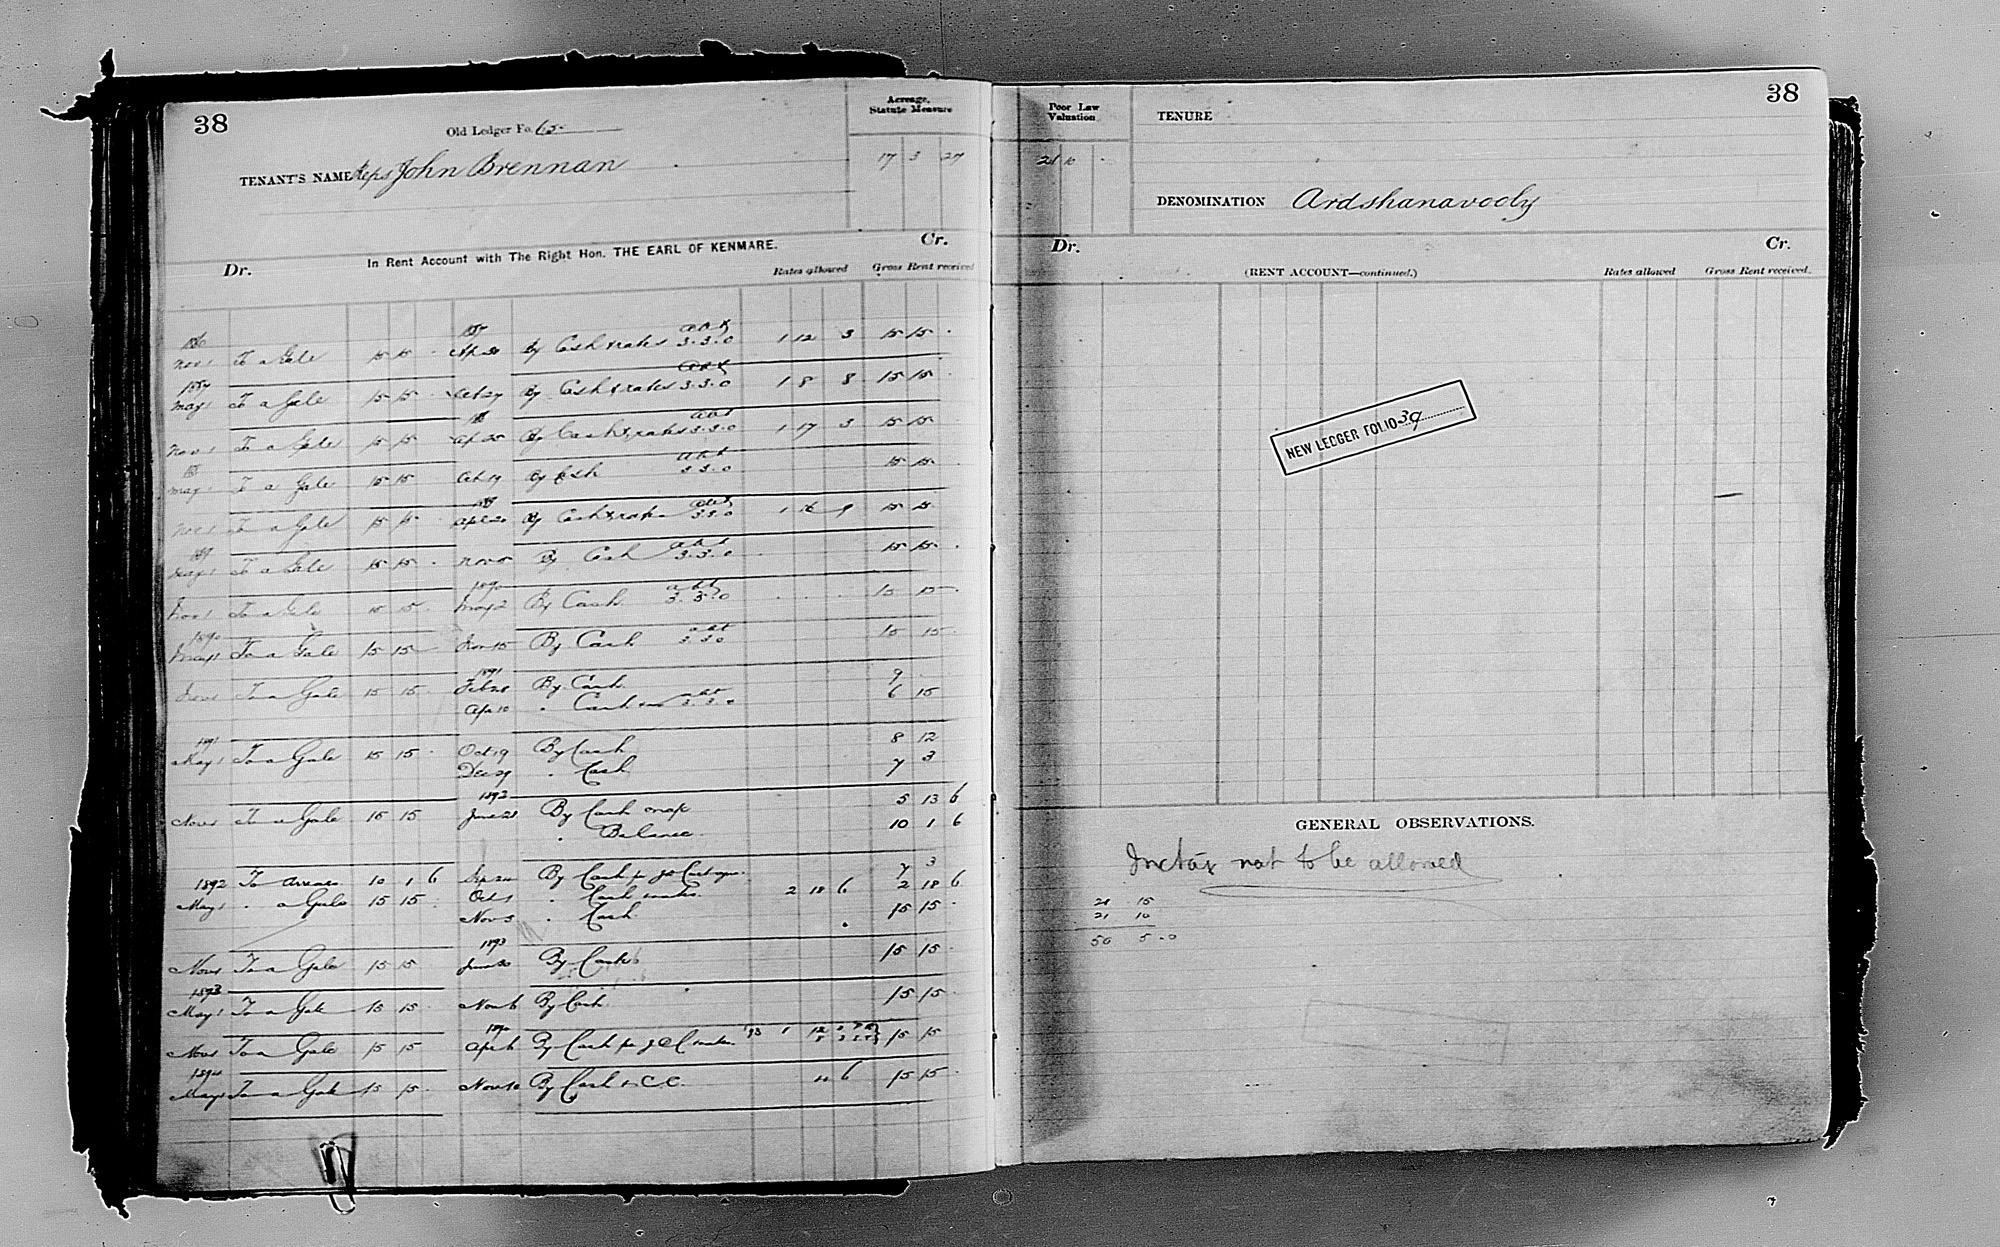 38
Old Ledger Fo. 65
Acreage, Statute Measure
TENANT'S NAME Reps John Brennan
17 3 27
In Rent Account with The Right Hon. THE EARL OF KENMARE.
Dr. Cr.
Rates allowed Gross Rent received
Nov 1 To a Gale 15 15 · Ap 30 By Cash & rates 3.3.0 1 12 3 15 15 ·
1887
May 1 To a Gale 15 15 · Oct 27 By Cash & rates 3.3.0 1 8 8 15 15 ·
Nov 1 To a Gale 15 15 Ap 25 By Cash & rates 3.3.0 1 17 3 15 15
May 1 To a Gale 15 15 Oct 19 By Cash abt 3.3.0 15 15
1889
Nov 1 To a Gale 15 15 Apl 20 By Cash & rates 3.3.0 1 16 9 15 15
1889
May 1 To a Gale 15 15 · Nov 5 By Cash abt 3.3.0 15 15 ·
1890 abt
Nov 1 To a Gale 15 15 · May 2 By Cash 3.3.0 15 15 ·
1890 abt
May 1 To a Gale 15 15 Nov 15 By Cash 3.3.0 15 15 ·
1891
Nov 1 To a Gale 15 15 · Feb 28 By Cash 9 ·
Apr 10 " Cash abt 3.3.0 6 15
1891
May 1 To a Gale 15 15 · Oct 19 By Cash 8 12
Dec 29 " Cash 7 3
1892
Nov 1 To a Gale 15 15 June 21 By Cash 5 13 6
" Balance 10 1 6
1892 To Arrears 10 1 6 Sep 24 By Cash per 7 3
May 1 " a Gale 15 15 Oct 1 " Cash rates 2 18 6 2 18 6
Nov 5 " Cash 15 15 ·
1893
Nov 1 To a Gale 15 15 June 30 By Cash 15 15 ·
1893
May 1 To a Gale 15 15 · Nov 6 By Cash 15 15 ·
Nov 1 To a Gale 15 15 Apr 6 By Cash per J & C rates '93 1 12 15 15
1894
May 1 To a Gale 15 15 · Nov 10 By Cash & C.C. 11 6 15 15 ·
38
Poor Law Valuation
21 10 -
TENURE
DENOMINATION Ardshanavooly
Dr. Cr.
(RENT ACCOUNT—continued.)
Rates allowed Gross Rent received.
NEW LEDGER FOLIO 39
GENERAL OBSERVATIONS.
Inctax not to be allowed
15
21 10
50 5-0